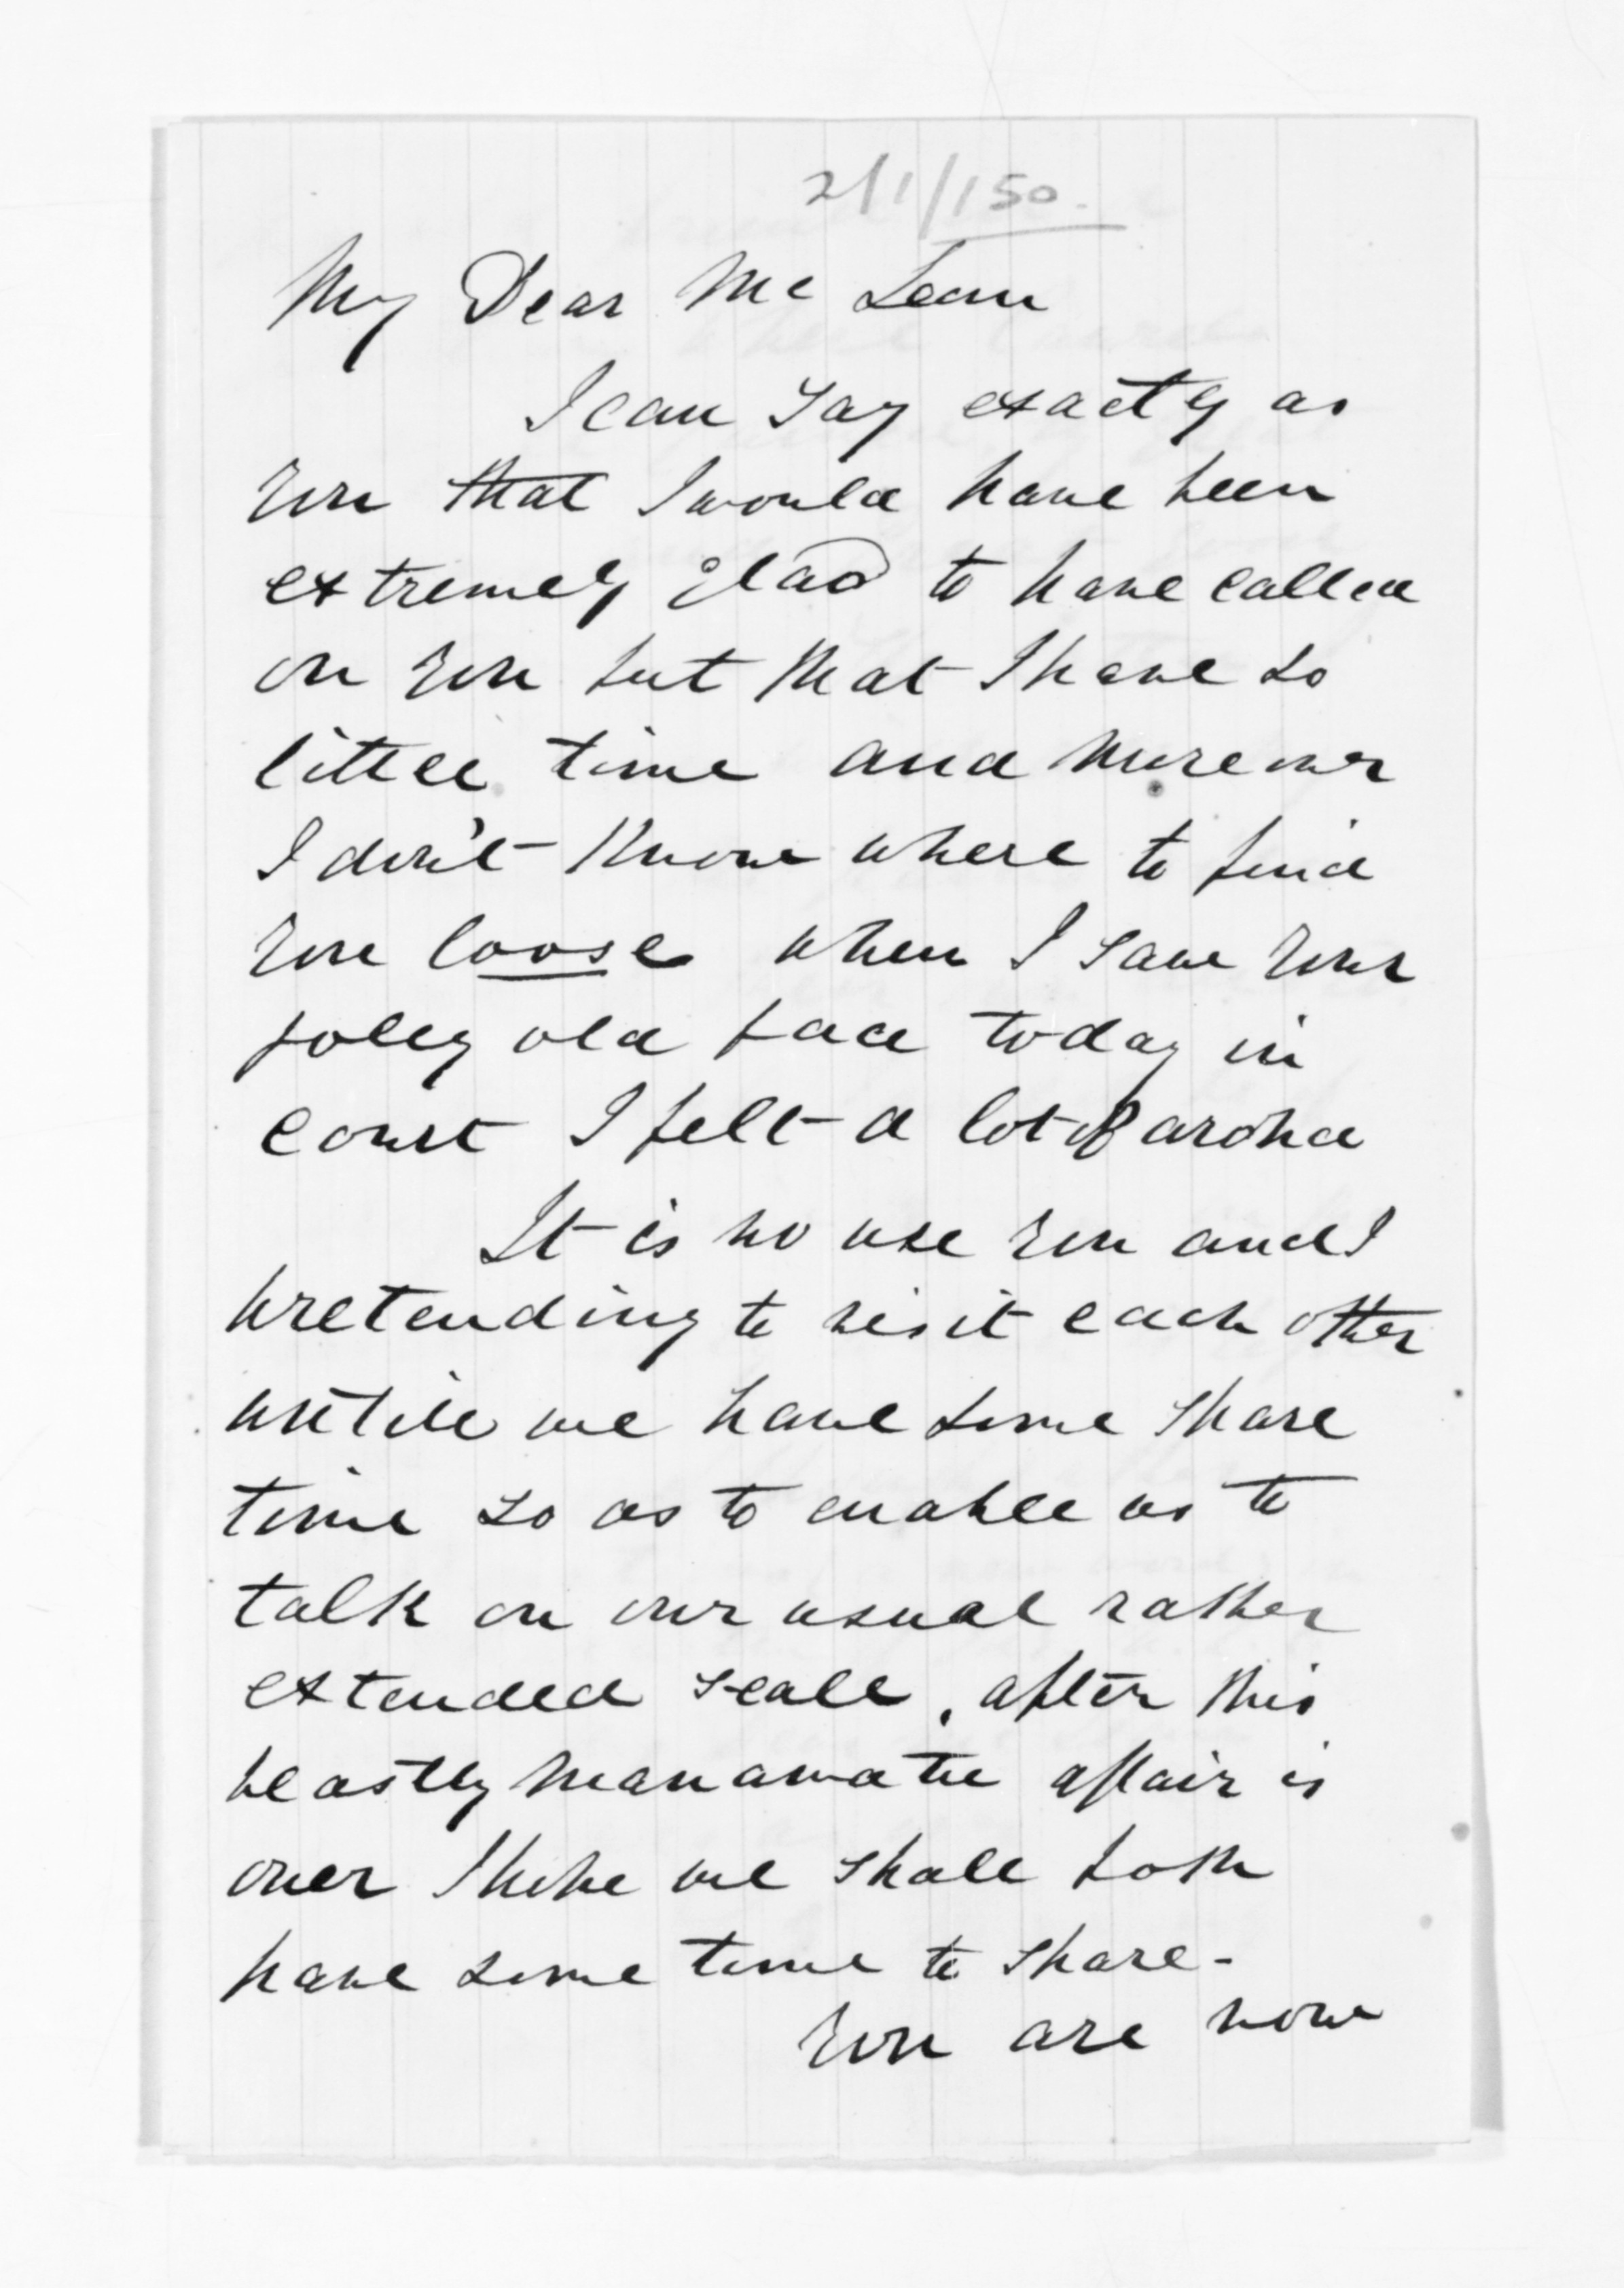 2/1/150.
My Dear McLean
I can say exactly as
you that I would have been
extremely glad to have called
on you but that I have so
little time and moreover
I don't know where to find
you loose when I saw your
jolly old face today in
court I felt a lot of aroha
It is no use you and I
pretending to visit each other
untill we have some spare
time so as to enable us to
talk on our usual rather
extended scale, after this
beastly Manawatu affair is
over I hope we shall both
have some time to spare -
You are now